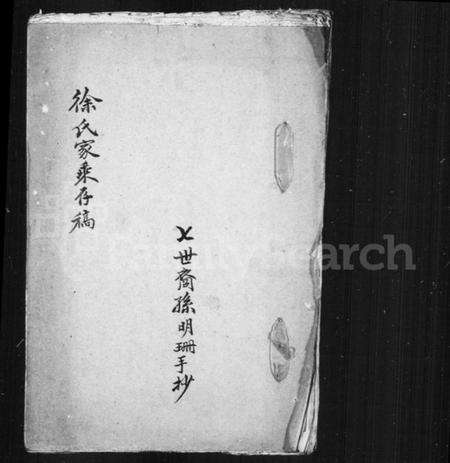 徐氏家乘存稿
乂世裔孫明珊手抄
FamilySearch